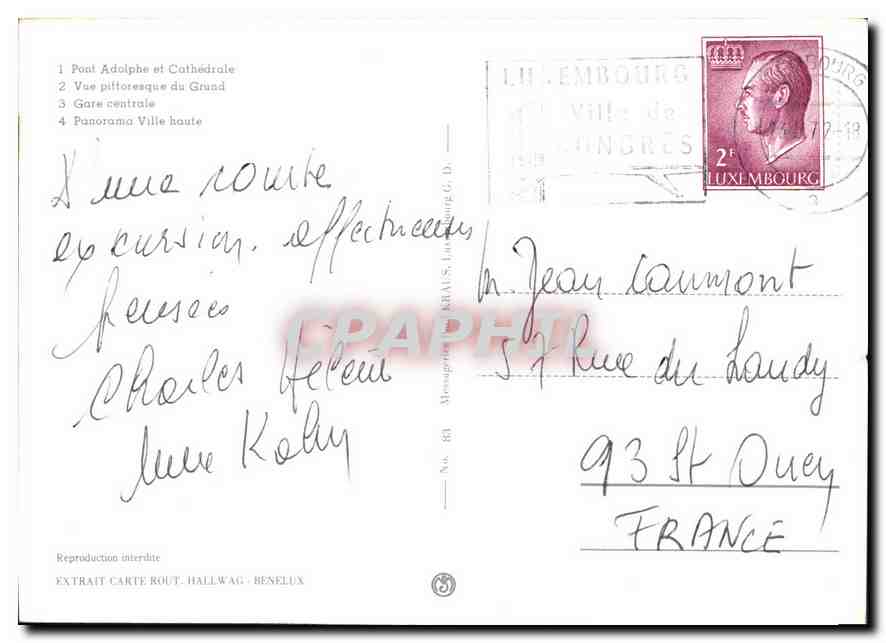 1 Pont Adolphe et Cathédrale
2 Vue pittoresque du Grund
3 Gare centrale
4 Panorama Ville haute
D'une courte
excursion. affectueuses
pensées
Charles Hélène
Reproduction interdite
EXTRAIT CARTE ROUT. HALLWAG - BENELUX
No. 83 Messageries KRAUS, Luxembourg G. D.
LUXEMBOURG
Ville de
CONGRES
2F
LUXEMBOURG
M. Jean Caumont
57 Rue du Landy
93 St Ouen
FRANCE
CPAPHIL